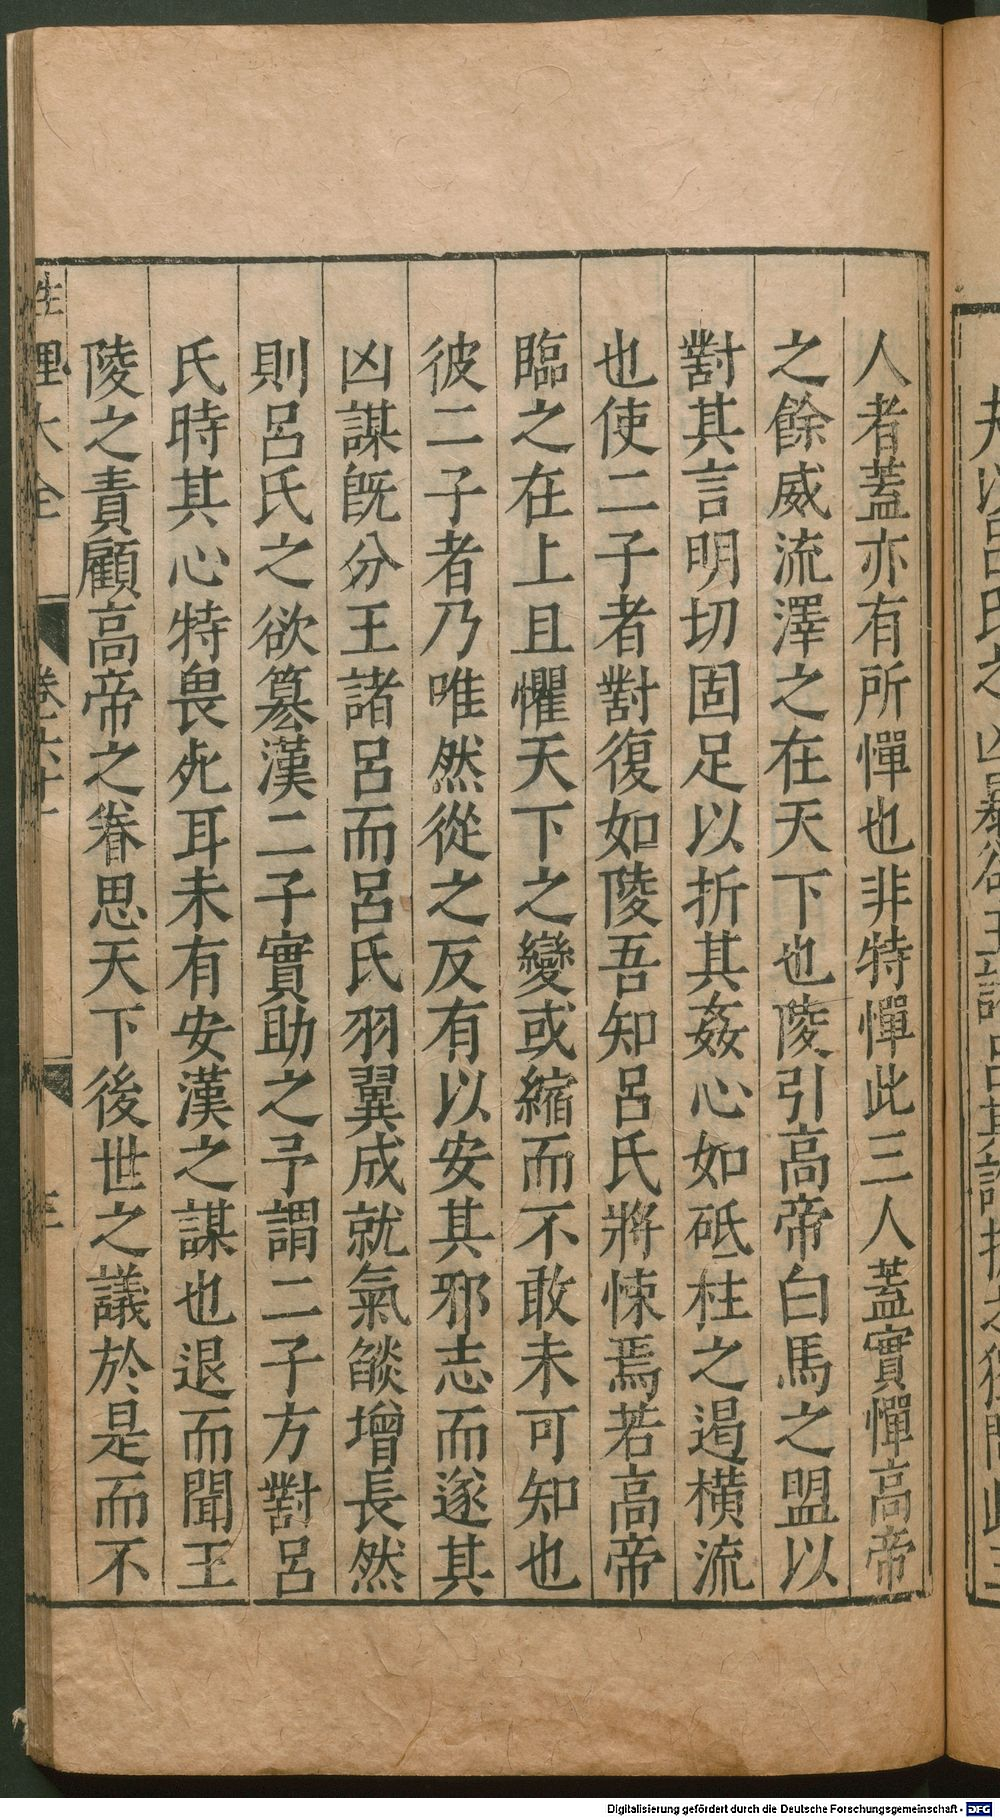 人者蓋亦有所憚也非特憚此三人蓋實憚高帝
之餘威流澤之在天下也陵引高帝白馬之盟以
對其言明切固足以折其姦心如砥柱之遏橫流
也使二子者對復如陵吾知呂氏將悚焉若高帝
臨之在上且懼天下之變或縮而不敢未可知也
彼二子者乃唯然從之反有以安其邪志而遂其
凶謀旣分王諸呂而呂氏羽翼成就氣燄增長然
則呂氏之欲簒漢二子實助之予謂二子方對呂
氏時其心特畏死耳未有安漢之謀也退而聞王
陵之責顧高帝之眷思天下後世之議於是而不
性理大全
卷六十
三
Digitalisierung gefördert durch die Deutsche Forschungsgemeinschaft - DFG